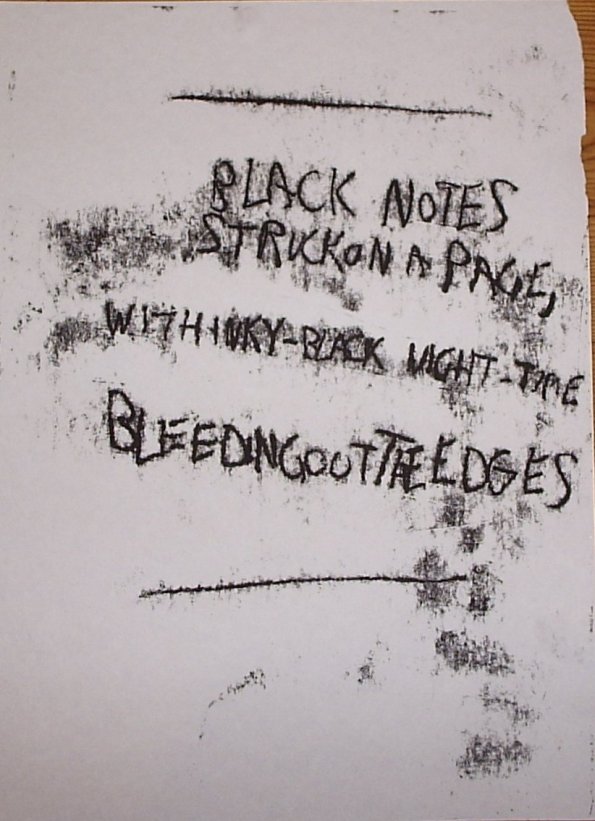 BLACK NOTES
STRUCK ON A PAGE,
WITH INKY-BLACK NIGHT-TIME
BLEEDING OUT THE EDGES